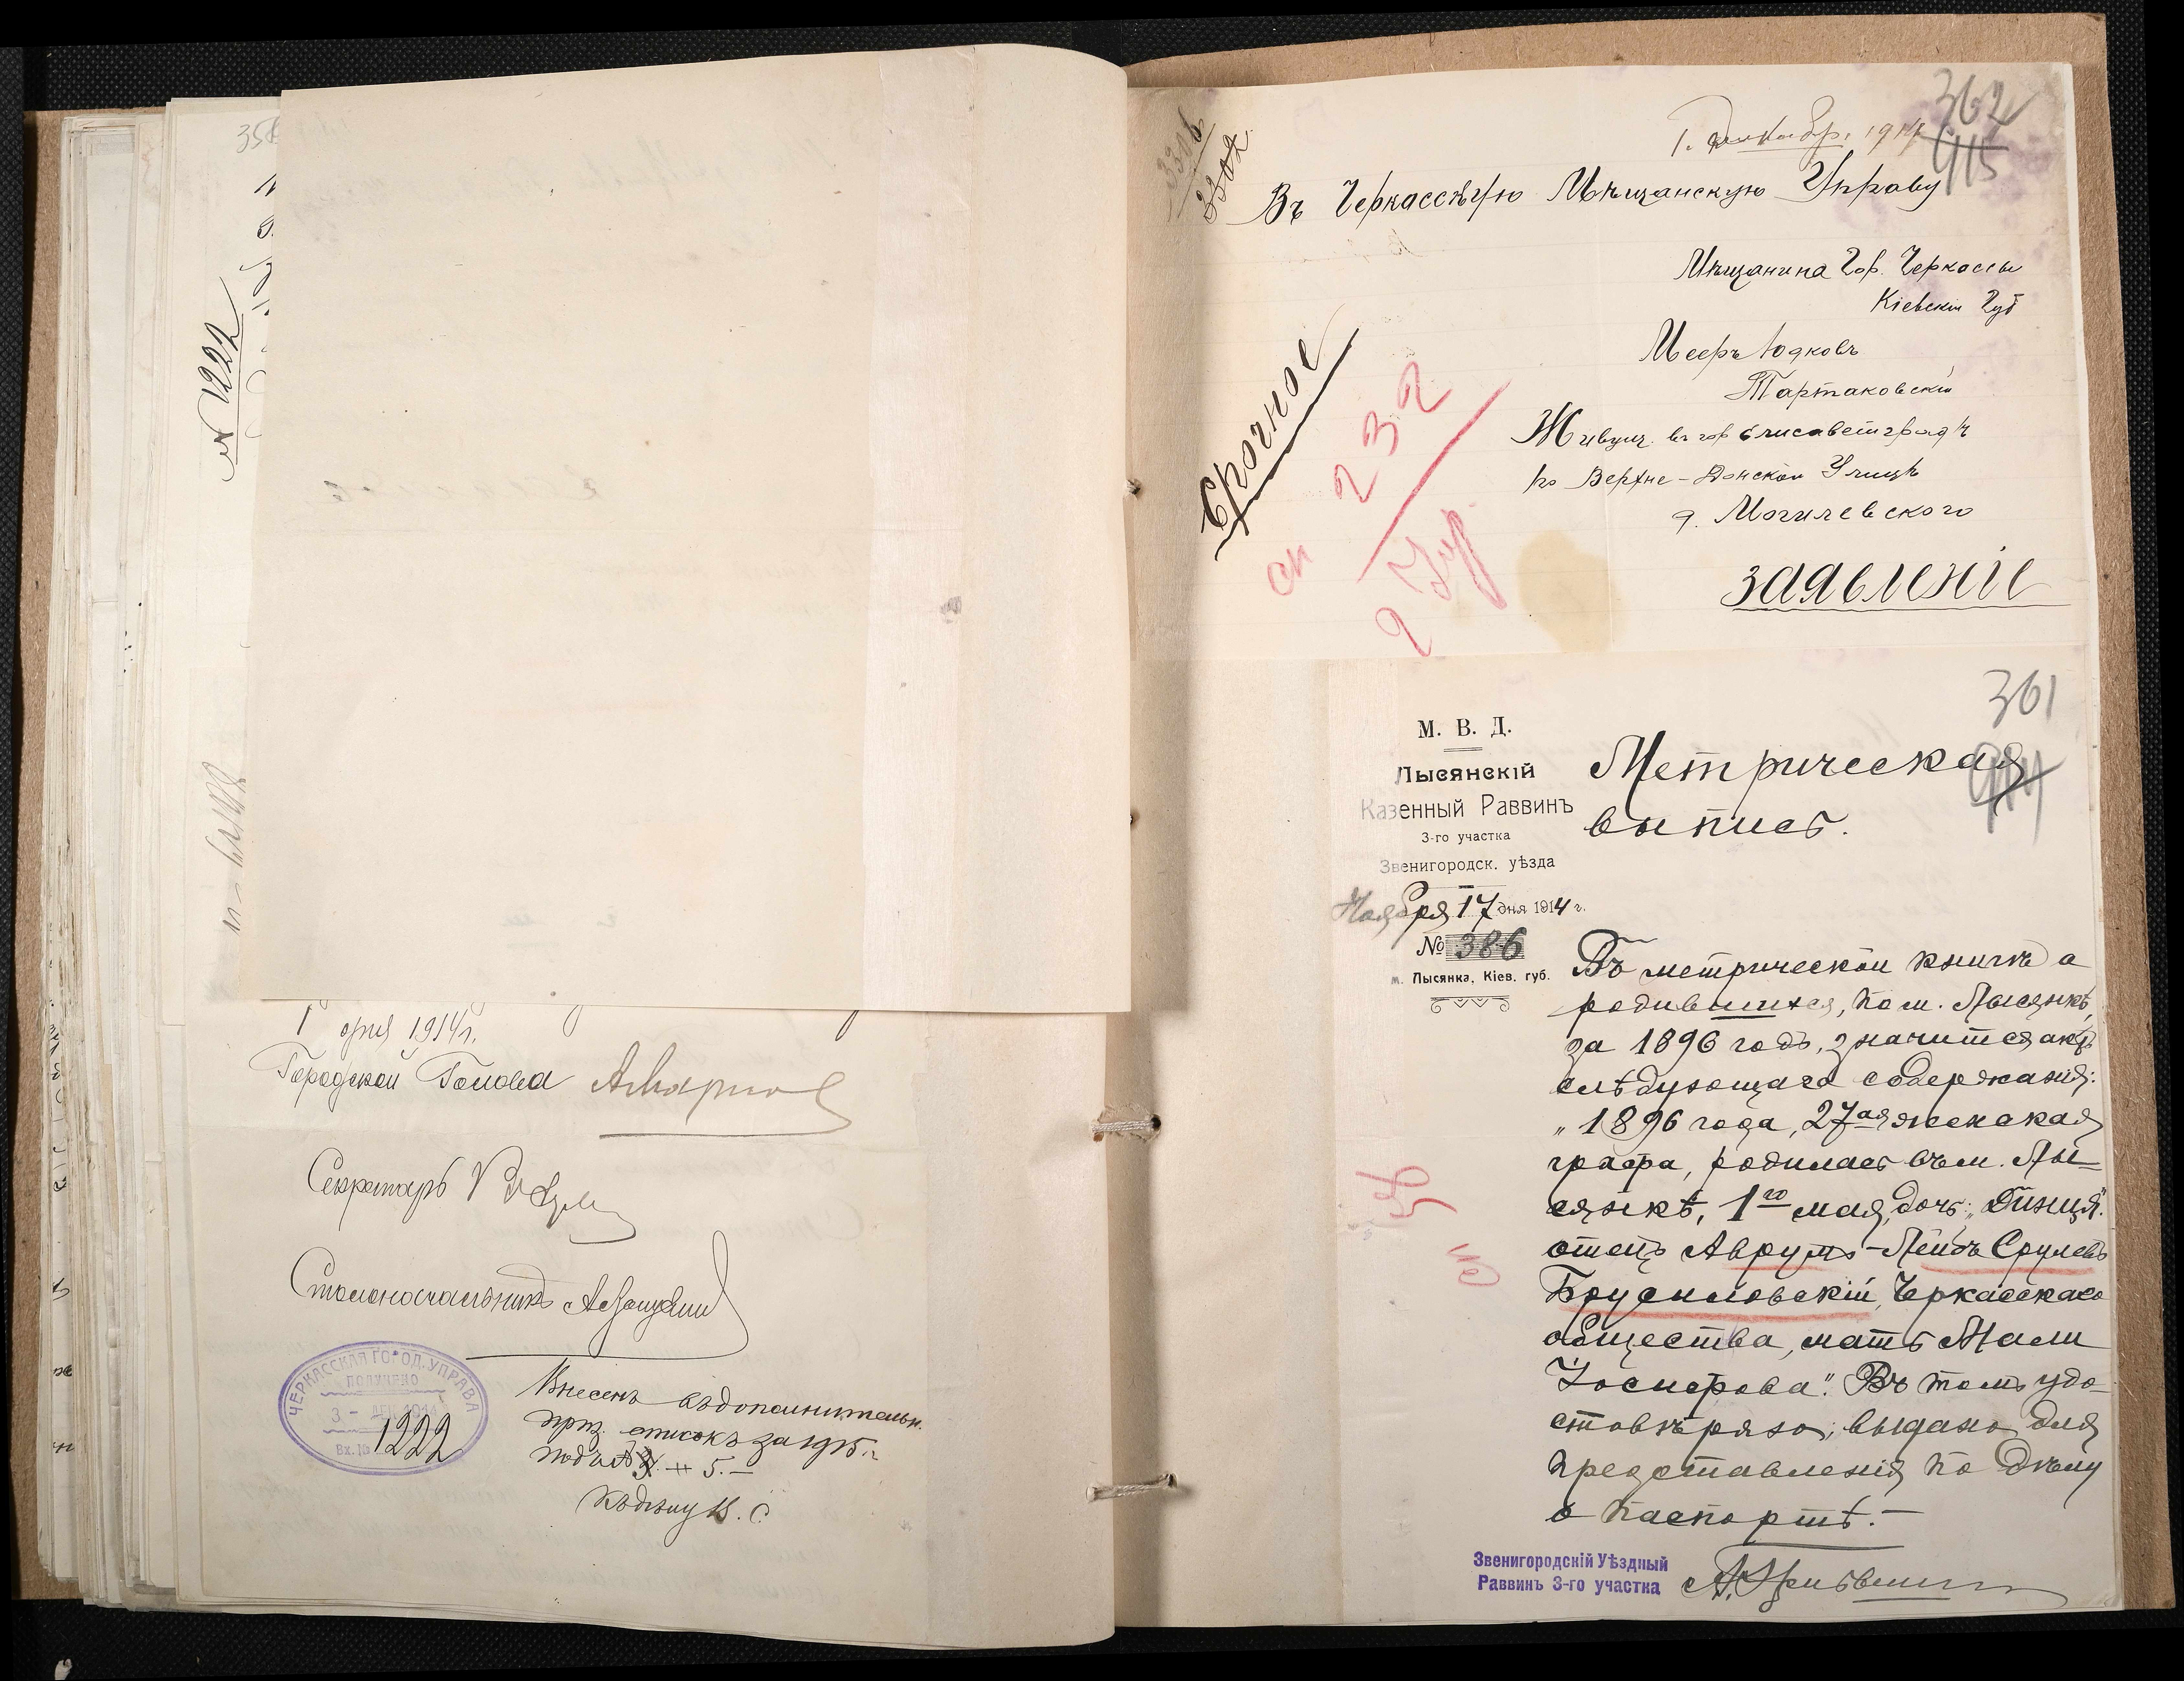 356
№ 1222
1 дня 1914 г.
Городской Голова
Секретарь
Столоначальникъ
ЧЕРКАССКАЯ ГОРОД. УПРАВА
ПОЛУЧЕНО
3 – ДЕК 1914
Вх. № 1222
Внесенъ въ дополнительн.
приз. списокъ за 1915 г.
подъ № 5.–
Къ дѣлу
362
915
1. Декабр. 1914
3306
3302
Въ Черкасскую Мѣщанскую Управу
Мѣщанина Гор. Черкассы
Кіевскій Губ
Мееръ Юдковъ
Тартаковскій
Живущ. въ гор Елисаветградѣ
по Верхне-Донской Улицѣ
д. Могилевского
Срочное
сп 232
2 Чр
заявленіе
361
914
М. В. Д.
Лысянскій
Казенный Раввинъ
3-го участка
Звенигородск. уѣзда
Ноября 17 дня 1914 г.
№ 386
м. Лысянка, Кіев. губ.
Метрическая
выпись.
Въ метрической книгѣ о
родившихся, по м. Лысянкѣ,
за 1896 годъ, значится актъ
слѣдующаго содержанія:
„1896 года, 27ая женская
графа, родилась въ м. Лы-
сянкѣ, 1го мая, дочь: „
отецъ Аврумъ-Лейбъ Срулевъ
Брусиловскій, Черкасскаго
общества, мать Мали
Іосифова“. Въ томъ удо-
стовѣряю; выдано для
представленія по дѣлу
о паспортѣ.–
Звенигородскій Уѣздный
Раввинъ 3-го участка